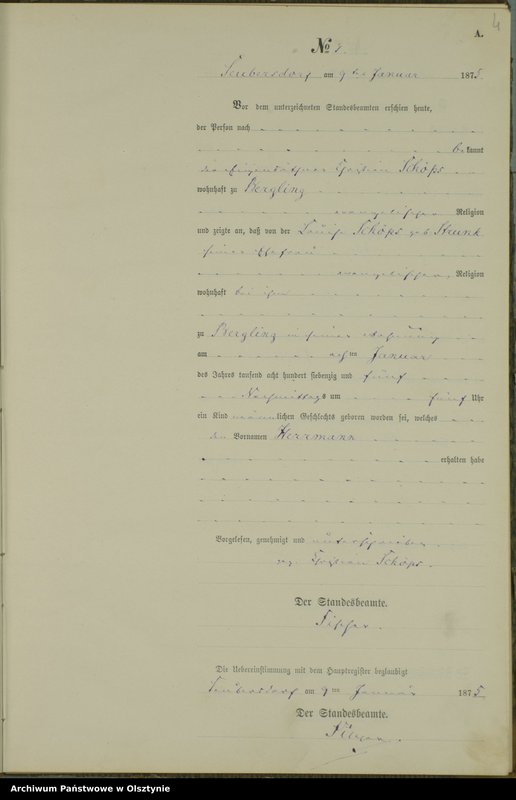 4
A.
No
Seubersdorf am 9ten Januar 1875.
Vor dem unterzeichneten Standesbeamten erschien heute,
der Person nach
bekannt
der Eigenkäthner Christian Schöps
wohnhaft zu Bergling
evangelischer Religion
und zeigte an, daß von der Louise Schöps geb. Strunk
seiner Ehefrau
evangelischer Religion
wohnhaft bei ihm
zu Bergling in seiner Wohnung
am achten Januar
des Jahres tausend acht hundert siebenzig und fünf
Nachmittags um fünf Uhr
ein Kind männlichen Geschlechts geboren worden sei, welches
den Vornamen Herrmann
erhalten habe
Vorgelesen, genehmigt und unterschrieben
gez. Christian Schöps.
Der Standesbeamte.
Die Uebereinstimmung mit dem Hauptregister beglaubigt
Seubersdorf am 9ten Januar 1875.
Der Standesbeamte.
Archiwum Państwowe w Olsztynie